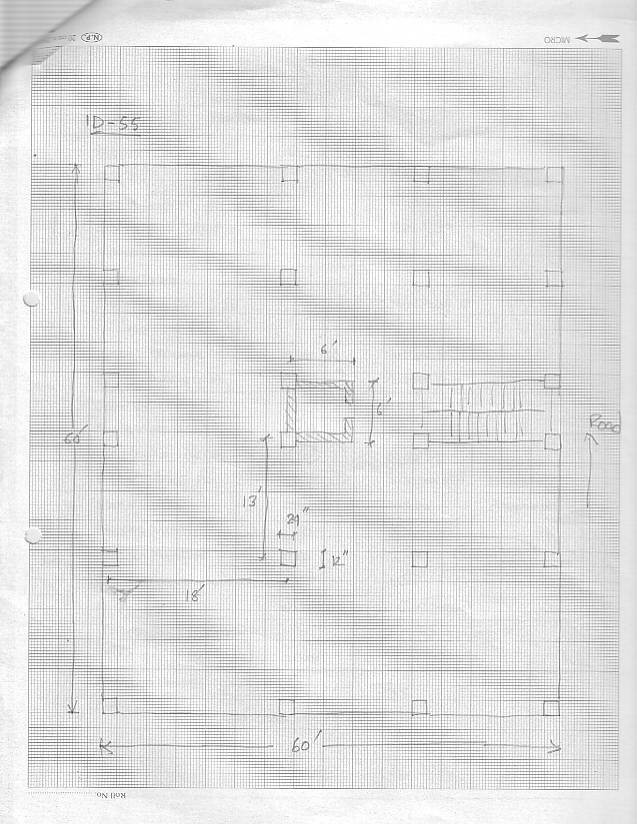 MICRO
N.P.
ID-55
6'
6'
60'
Road
13'
24"
12"
18'
60'
Roll No